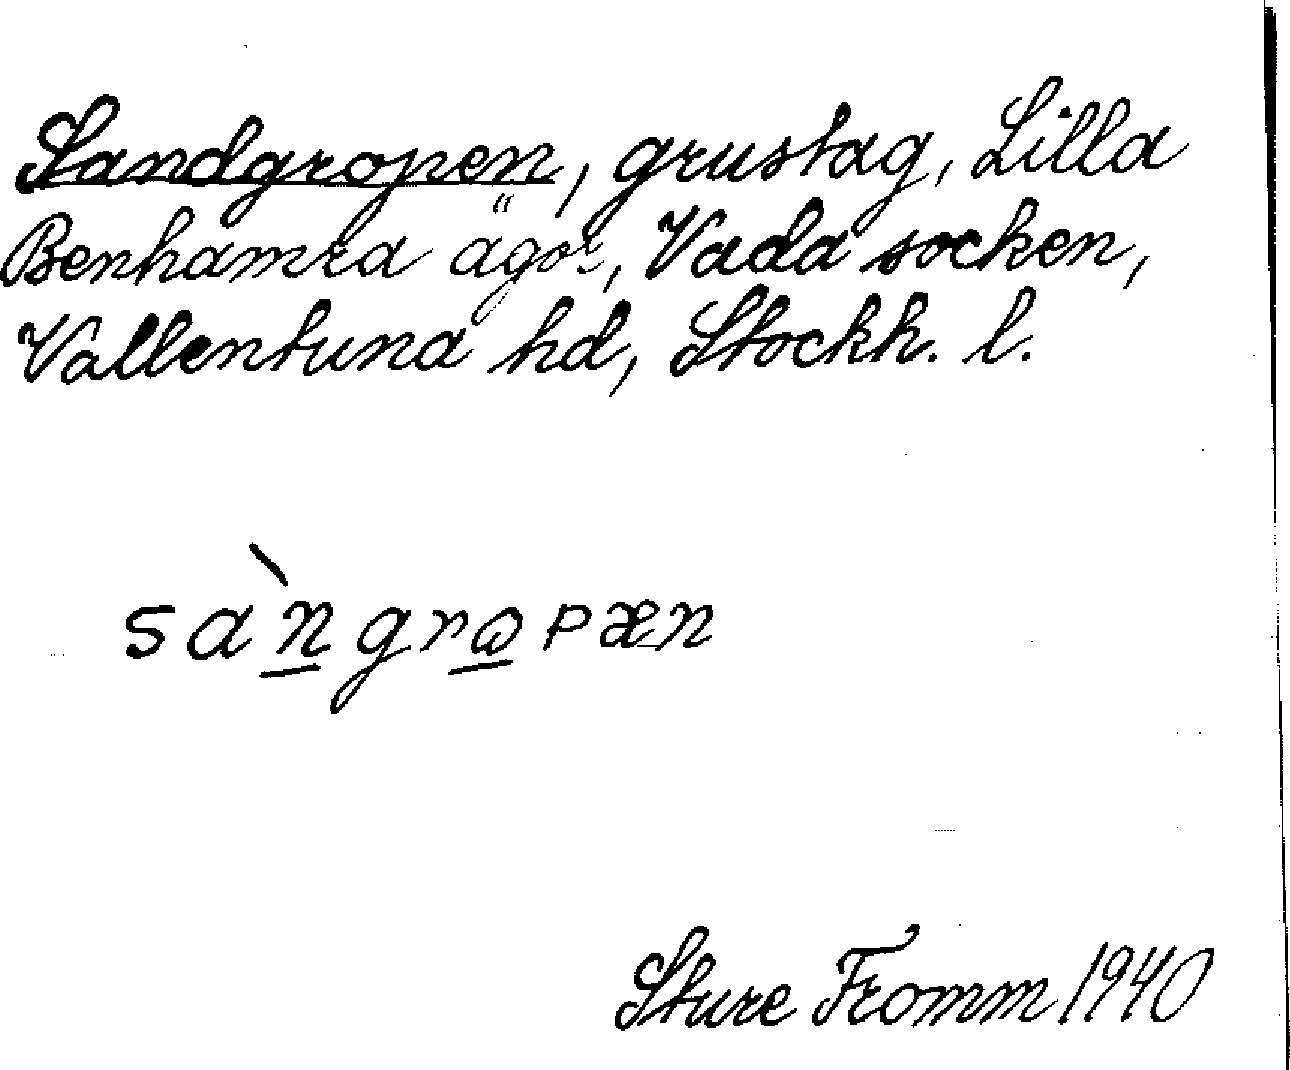 Sandgropen, grustag, Lilla
Benhamra ägor, Vada socken,
Vallentuna hd, Stockh. l.
sàn̲grω̲pæn
Sture Fromm 1940